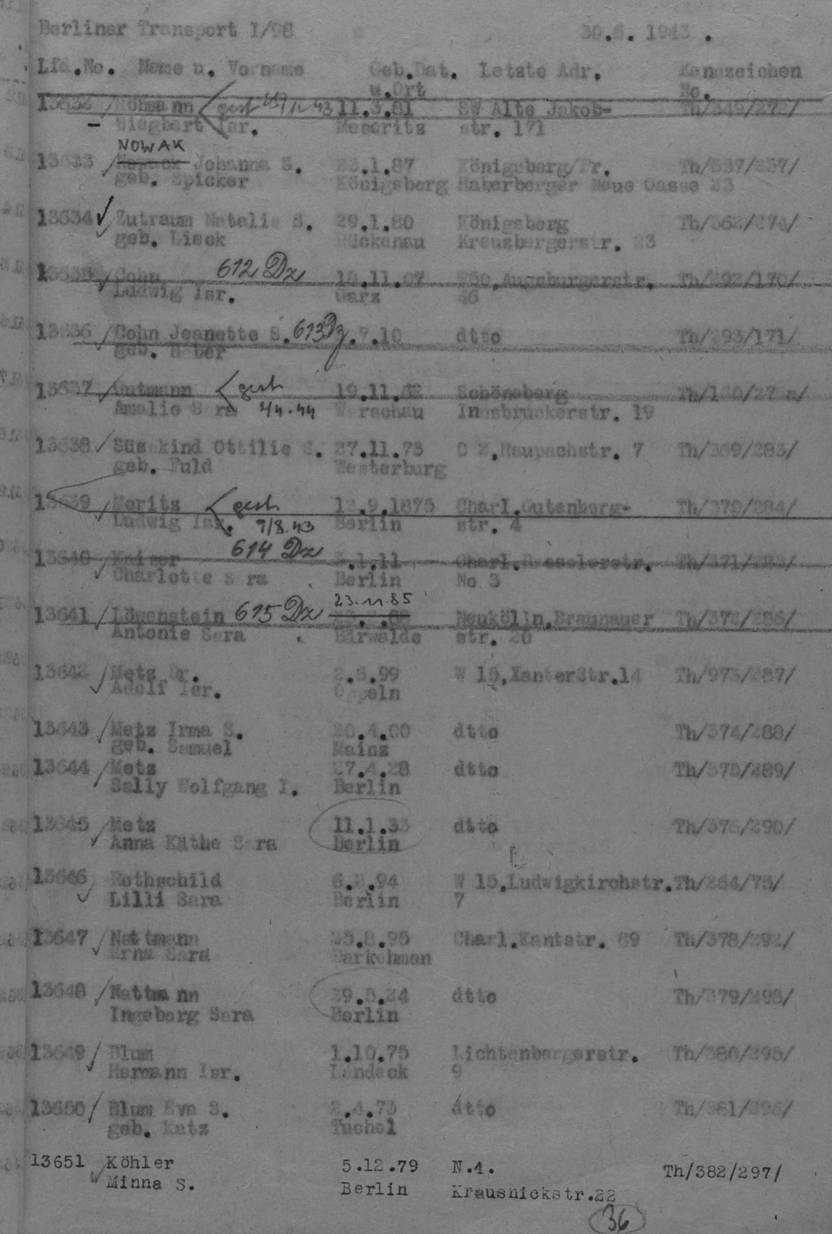 Berliner Transport I/98 30.6. 1943 .
Lfd.No. Name u. Vorname Geb.Dat. Letzte Adr. Kennzeichen
u.Ort No.
13632 gest 43 11.3.81 SW Alte Jakob-
Siegbert Isr. Meseritz str. 171
NOWAK
13633 Johanna S. .1.87 Königsberg/Pr.
geb. Spicker Königsberg Haberberger Neue Gasse 23
13634 Zutraum Natalie S. 29.1.80 Königsberg
geb. Lieck Rückenau Kreuzbergerstr. 23
13635 Cohn 612 Dz .11.07 Augsburgerstr. Th/292/170/
Ludwig Isr. 46
13636 Cohn Jeanette S. 613 Dz .7.10 dtto Th/293/171/
geb.
13637 Gutmann gest 19.11. Schöneberg
Amalie Sara 7/4.44 Warschau Innsbruckerstr. 19
13638 Süsskind Ottilie S. 27.11.75 C 2,Raupachstr. 7 Th/369/283/
geb. Fuld Westerburg
13639 Moritz gest .9.1875 Charl.Gutenberg- Th/370/284/
Ludwig Isr. 7/8.43 Berlin str. 4
13640 Kaiser 614 Dz .1.11 Th/371/285/
Charlotte Sara Berlin No 3
23.11.85
13641 Löwenstein 615 Dz Neukölln,Braunauer Th/372/286/
Antonie Sara Bärwalde str. 20
13642 Metz Dr. .99 W 15,Xanterstr.14 Th/973/287/
Adolf Isr. Oppeln
13643 Metz Irma S. 20.4.00 dtto Th/374/288/
geb. Samuel Mainz
13644 Metz 27.4.28 dtto Th/375/289/
Sally Wolfgang I. Berlin
13645 Metz 11.1.33 dtto Th/376/290/
Anna Käthe Sara Berlin
13646 Rothschild .94 W 15,Ludwigkirchstr. Th/264/75/
Lilli Sara Berlin 7
13647 Nattmann 25.8.95 Charl.Kantstr. 69 Th/378/292/
Erna Sara Darkehmen
13648 Nattmann 29.5.24 dtto Th/379/293/
Ingeborg Sara Berlin
13649 Blum 1.10.75 Lichtenbergerstr. Th/380/295/
Hermann Isr. Landeck 9
13650 Blum Eva S. 2.4.73 dtto Th/381/296/
geb. Katz Tuchel
13651 Köhler 5.12.79 N.4. Th/382/297/
Minna S. Berlin Krausnickstr.22
36